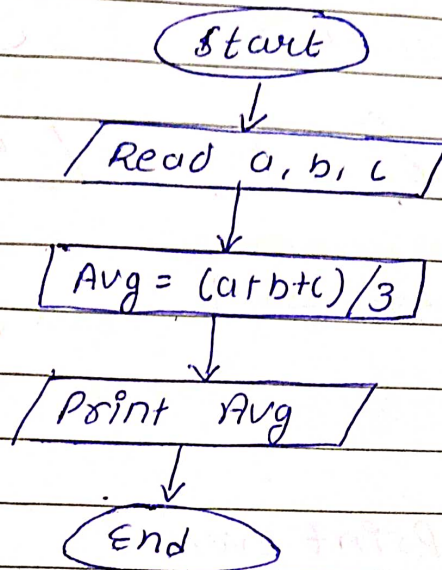 Start
Read a, b, c
Avg = (a+b+c)/3
Print Avg
End